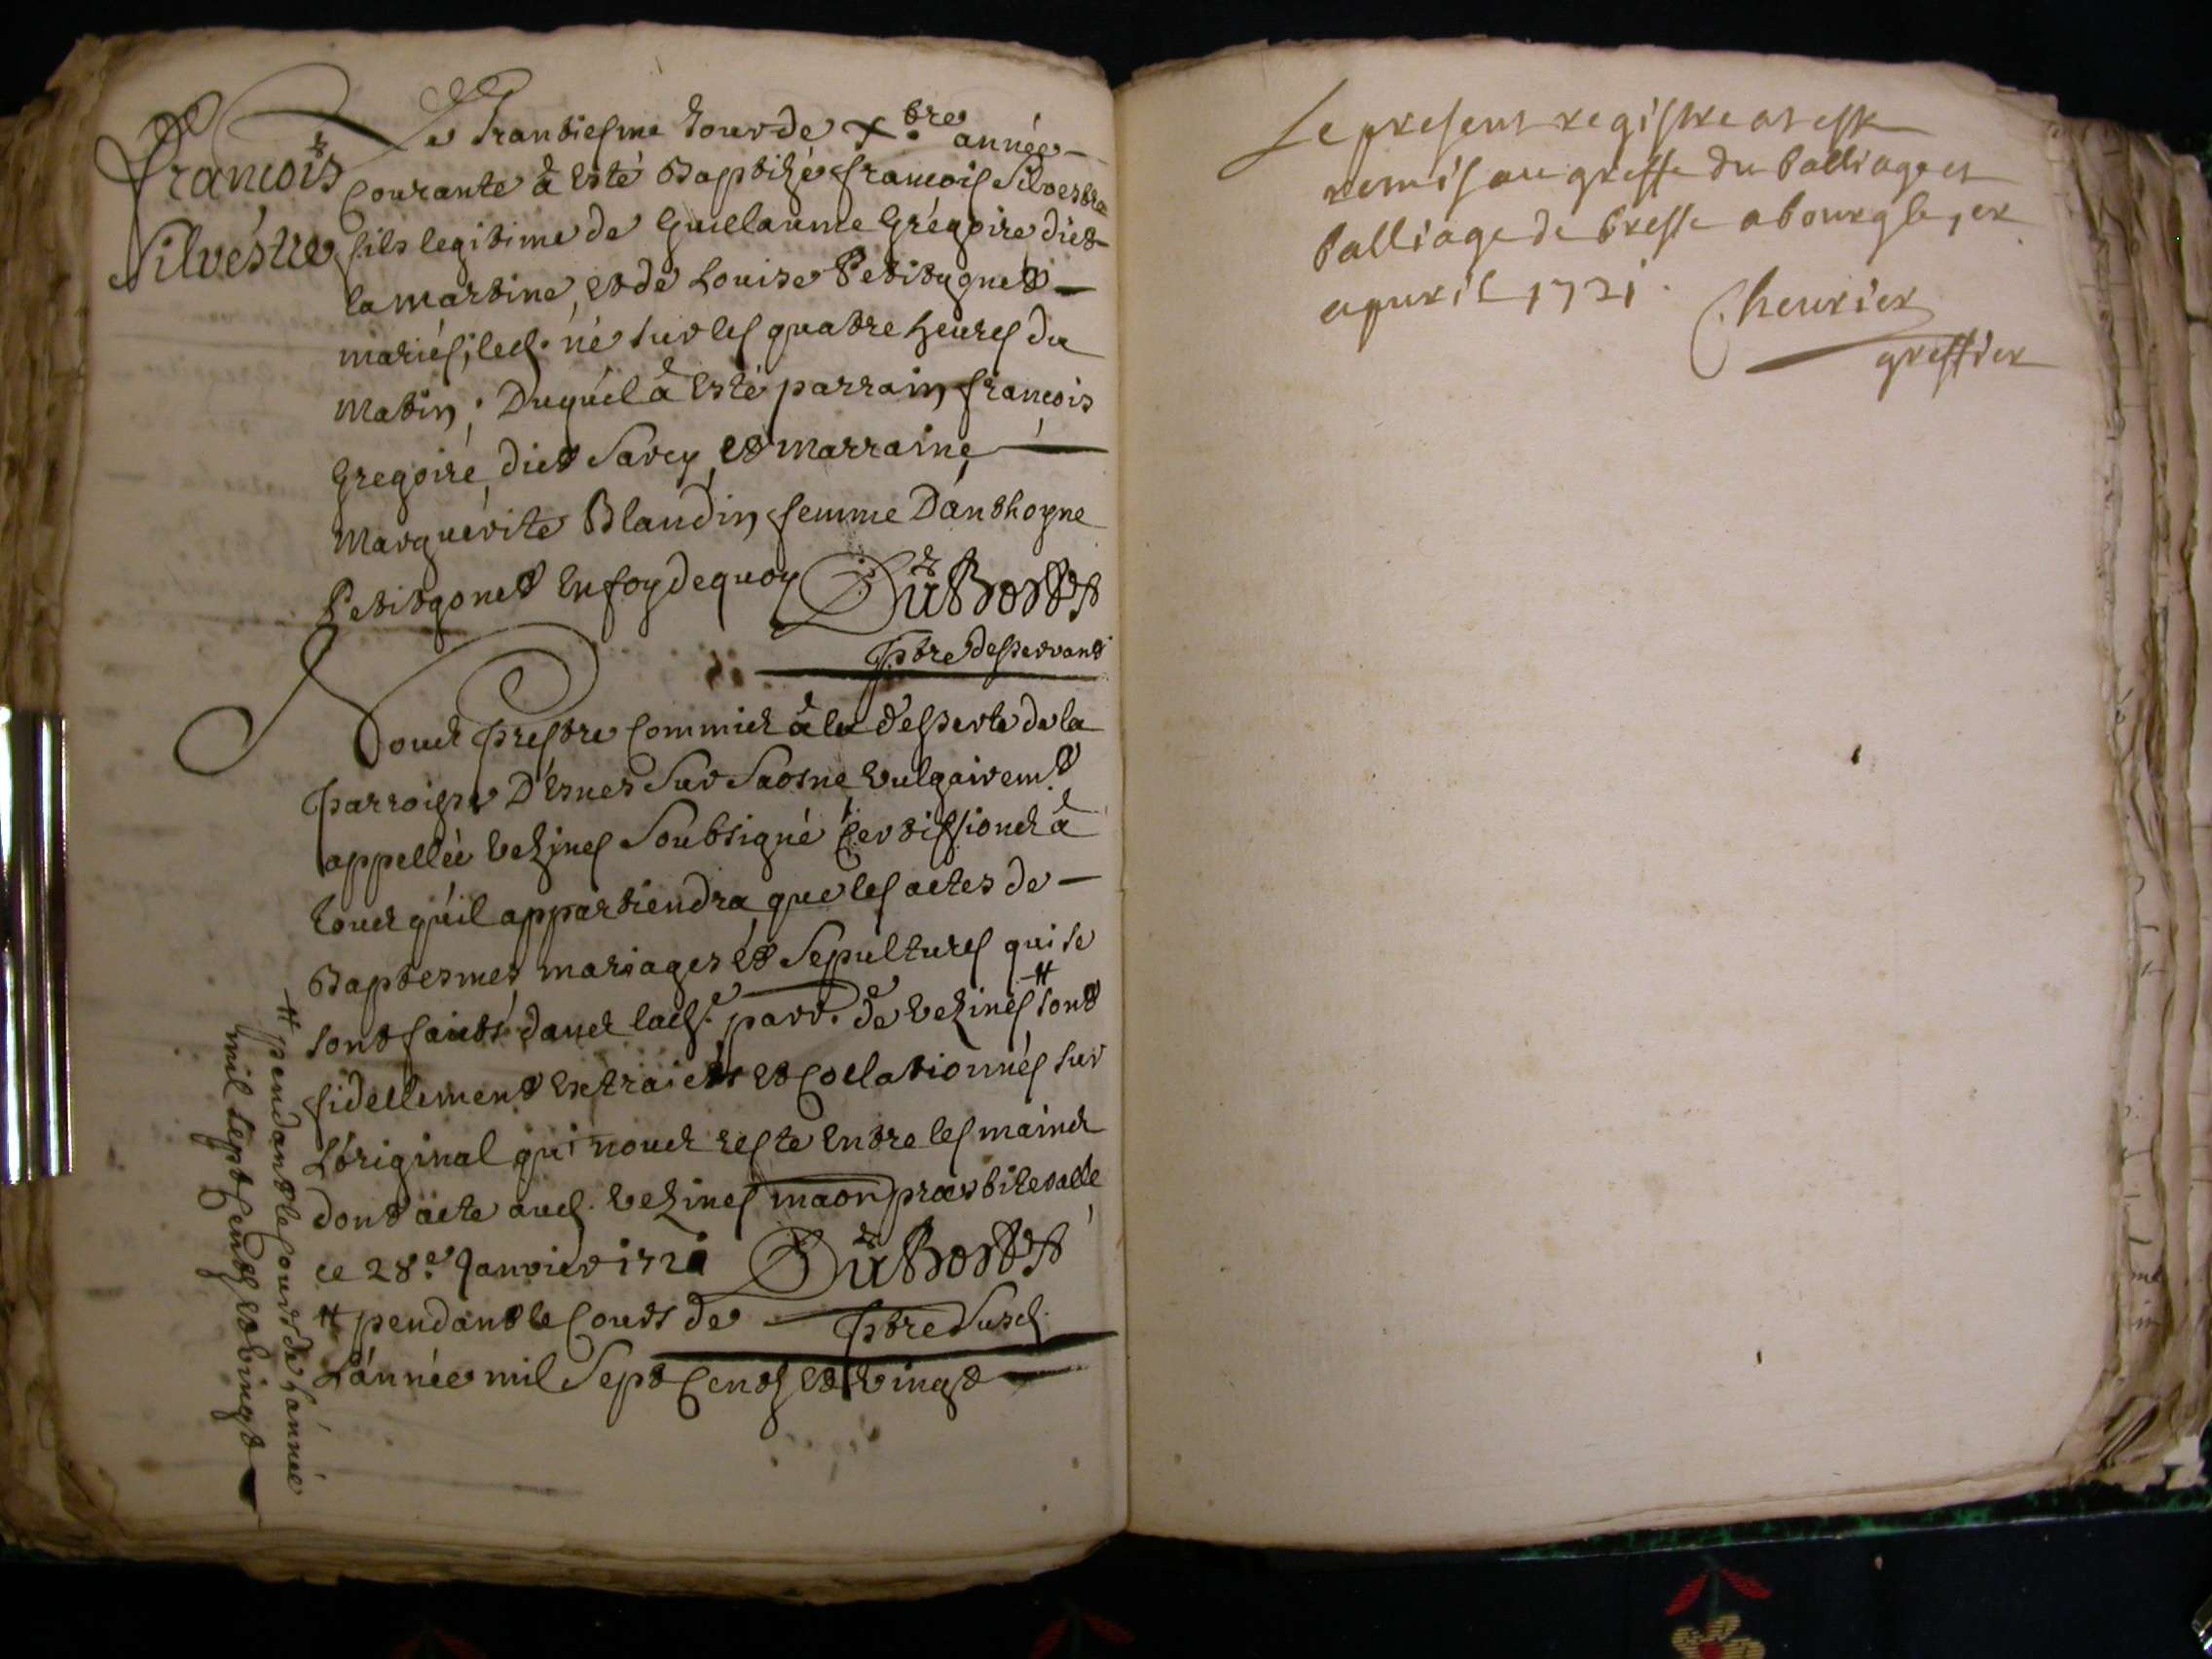 François
Silvestre
Le Trantiesme Jour de Xbre année
Courante à Esté Baptizé françois Silvestre
fils legitime de Guillaume Grégoire dict
la martine, et de Louise Petitygnet
mariés; led. né sur les quatre heures du
matin; Duquél à Esté parrain françois
Gregoire, dict Savey, et marraine
Marguérite Blandin femme D'anthoyne
Petitgonet En foy de quoy DuBost
ptre desservant
Nous prestre Commis à la desserte de la
parroisse D'Esnes sur Saosne vulgairemt
appellée Vezines Soubsigné Certiffions à
tous qu'il appartiendra que les actes de
Baptesmes mariages et Sepultures qui se
sont faicts dans lade parr. de Vezines # sont
fidellement Extraicts et Collationnés sur
L'original qui nous reste Entre les mains
dont acte aud. Vezines maon præsbiteralle
ce 28e Janvier 1721 DuBost
# pendant le Cours de ptre susd.
L'année mil Sept Cents et vingt
# pendant le Cours de L'année
mil sept Cents et vingt
Le present registre at esté
remis au greffe du balliage et
balliage de bresse a bourg le 1er
apvril 1721. Cheurier
greffier